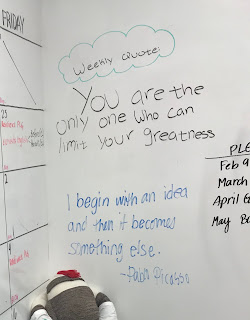 FRIDAY
Weekly Quote:
You are the
only one who can
limit your greatness
I begin with an idea
and then it becomes
something else.
-Pablo Picasso
PLE
Feb 9
March
April 6
May
25
2
4